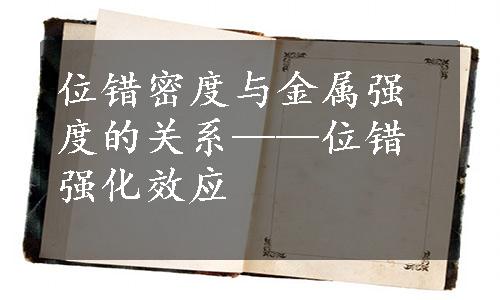 位错密度与金属强
度的关系——位错
强化效应